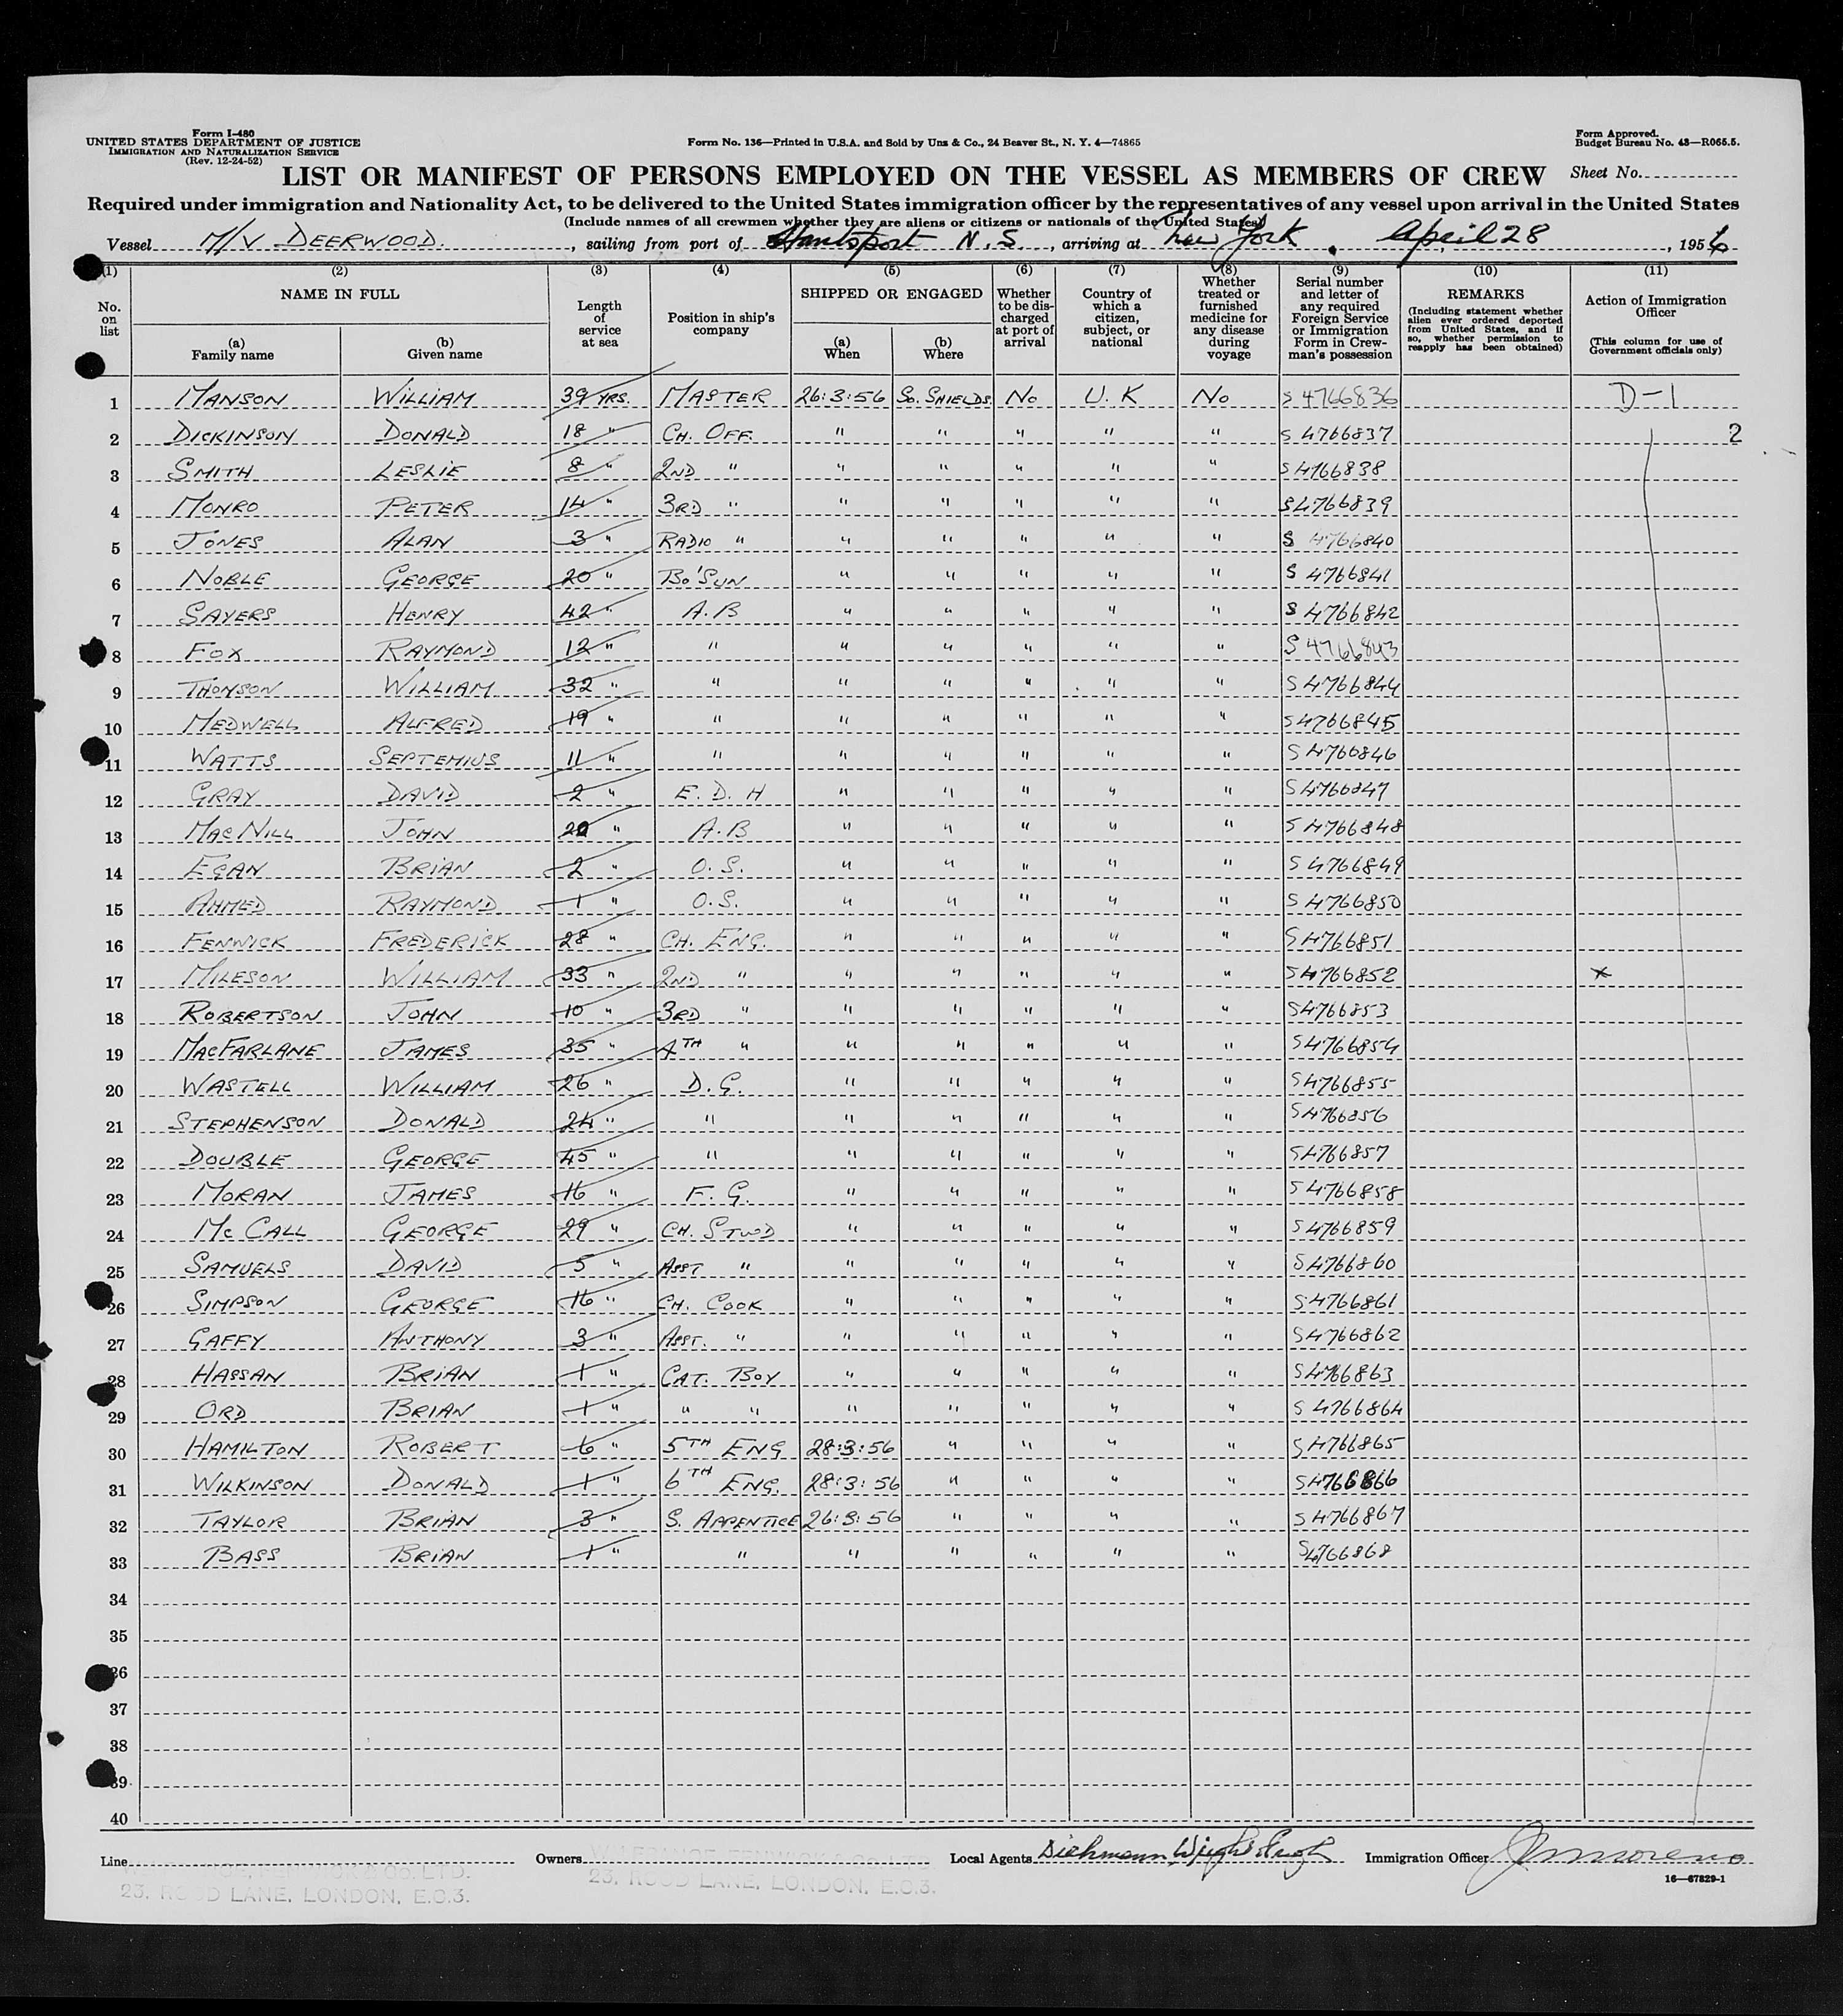 Form I-480
UNITED STATES DEPARTMENT OF JUSTICE
IMMIGRATION AND NATURALIZATION SERVICE
(Rev. 12-24-52)
Form No. 136—Printed in U.S.A. and Sold by Unz & Co., 24 Beaver St., N. Y. 4—74865
Form Approved.
Budget Bureau No. 43—R065.5.
LIST OR MANIFEST OF PERSONS EMPLOYED ON THE VESSEL AS MEMBERS OF CREW Sheet No.
Required under immigration and Nationality Act, to be delivered to the United States immigration officer by the representatives of any vessel upon arrival in the United States
(Include names of all crewmen whether they are aliens or citizens or nationals of the United States)
Vessel M/V DEERWOOD, sailing from port of Hantsport N.S., arriving at New York, April 28, 1956
(1) (2) (3) (4) (5) (6) (7) (8) (9) (10) (11)
No. on list
NAME IN FULL
(a) Family name
(b) Given name
Length of service at sea
Position in ship's company
SHIPPED OR ENGAGED
(a) When
(b) Where
Whether to be discharged at port of arrival
Country of which a citizen, subject, or national
Whether treated or furnished medicine for any disease during voyage
Serial number and letter of any required Foreign Service or Immigration Form in Crewman's possession
REMARKS
(Including statement whether alien ever ordered deported from United States, and if so, whether permission to reapply has been obtained)
Action of Immigration Officer
(This column for use of Government officials only)
1 MANSON WILLIAM 39 YRS. MASTER 26:3:56 So. SHIELDS No U.K No S 4766836 D-1
2 DICKINSON DONALD 18 " CH. OFF. " " " " " S 4766837 2
3 SMITH LESLIE 8 " 2ND " " " " " " S 4766838
4 MONRO PETER 14 " 3RD " " " " " " S 4766839
5 JONES ALAN 3 " RADIO " " " " " " S 4766840
6 NOBLE GEORGE 20 " BO'SUN " " " " " S 4766841
7 SAYERS HENRY 42 " A.B " " " " " S 4766842
8 FOX RAYMOND 12 " " " " " " " S 4766843
9 THOMSON WILLIAM 32 " " " " " " " S 4766844
10 MEDWELL ALFRED 19 " " " " " " " S 4766845
11 WATTS SEPTEMIUS 11 " " " " " " " S 4766846
12 GRAY DAVID 2 " E.D.H " " " " " S 4766847
13 MACNILL JOHN 20 " A.B " " " " " S 4766848
14 EGAN BRIAN 2 " O.S. " " " " " S 4766849
15 AHMED RAYMOND 1 " O.S. " " " " " S 4766850
16 FENWICK FREDERICK 28 " CH. ENG. " " " " " S 4766851
17 MILESON WILLIAM 33 " 2ND " " " " " " S 4766852 x
18 ROBERTSON JOHN 10 " 3RD " " " " " " S 4766853
19 MACFARLANE JAMES 35 " 4TH " " " " " " S 4766854
20 WASTELL WILLIAM 26 " D.G. " " " " " S 4766855
21 STEPHENSON DONALD 24 " " " " " " " S 4766856
22 DOUBLE GEORGE 45 " " " " " " " S 4766857
23 MORAN JAMES 16 " F.G. " " " " " S 4766858
24 McCALL GEORGE 29 " CH. STWD " " " " " S 4766859
25 SAMUELS DAVID 5 " ASST " " " " " " S 4766860
26 SIMPSON GEORGE 16 " CH. COOK " " " " " S 4766861
27 GAFFY ANTHONY 3 " ASST. " " " " " " S 4766862
28 HASSAN BRIAN 1 " CAT. BOY " " " " " S 4766863
29 ORD BRIAN 1 " " " " " " " " S 4766864
30 HAMILTON ROBERT 6 " 5TH ENG 28:3:56 " " " " S 4766865
31 WILKINSON DONALD 1 " 6TH ENG. 28:3:56 " " " " S 4766866
32 TAYLOR BRIAN 3 " S. APPENTICE 26:3:56 " " " " S 4766867
33 BASS BRIAN 1 " " " " " " " S 4766868
34
35
36
37
38
39
40
Line Owners Local Agents Immigration Officer
23, ROOD LANE, LONDON, E.C.3.
23, ROOD LANE, LONDON, E.C.3.
16—67829-1